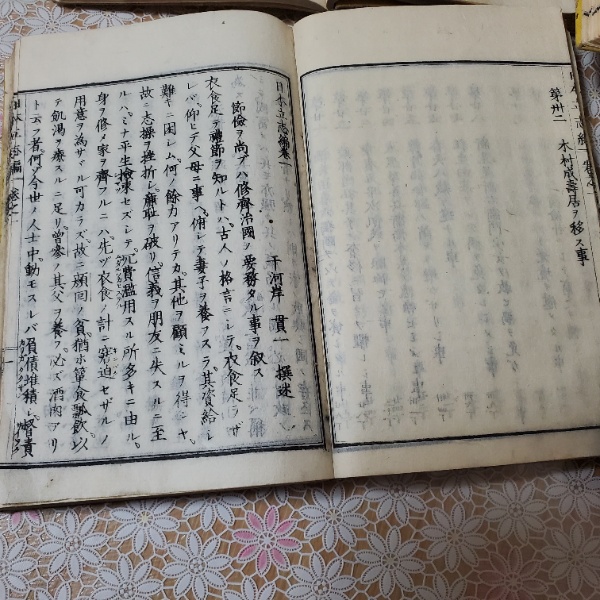 第卅二 木村成壽居ヲ移ス事
日本立志編卷一
千河岸貫一 撰述
節儉ヲ尚ブハ修齊治國ノ要務タル事ヲ叙ス
衣食足テ禮節ヲ知ルトハ古人ノ格言ニシテ衣食足ラザ
レバ仰ヒテ父母ニ事ヘ俯シテ妻子ヲ養フスラ其資給シ
難キニ困レム何ノ餘力アリテカ其他ヲ顧ミルヲ得ンヤ
故ニ志操ヲ挫折シ廉耻ヲ破リ信義ヲ朋友ニ失スルニ至
ルハミナ平生儉束セズシテ冗費濫用スル所多キニ由ル
身ヲ修メ家ヲ齊フルニハ先ヅ衣食ノ計ニ窘迫セザルノ
用意ヲ為サヾル可カラズ故ニ顔回ノ貪猶ホ簞食瓢飲以
テ飢渇ヲ療スルニ足リ曾參ノ其父ヲ養フ必ズ酒肉アリ
ト云フ者何ゾ今世ノ人士中動モスレバ負債堆積シ督責